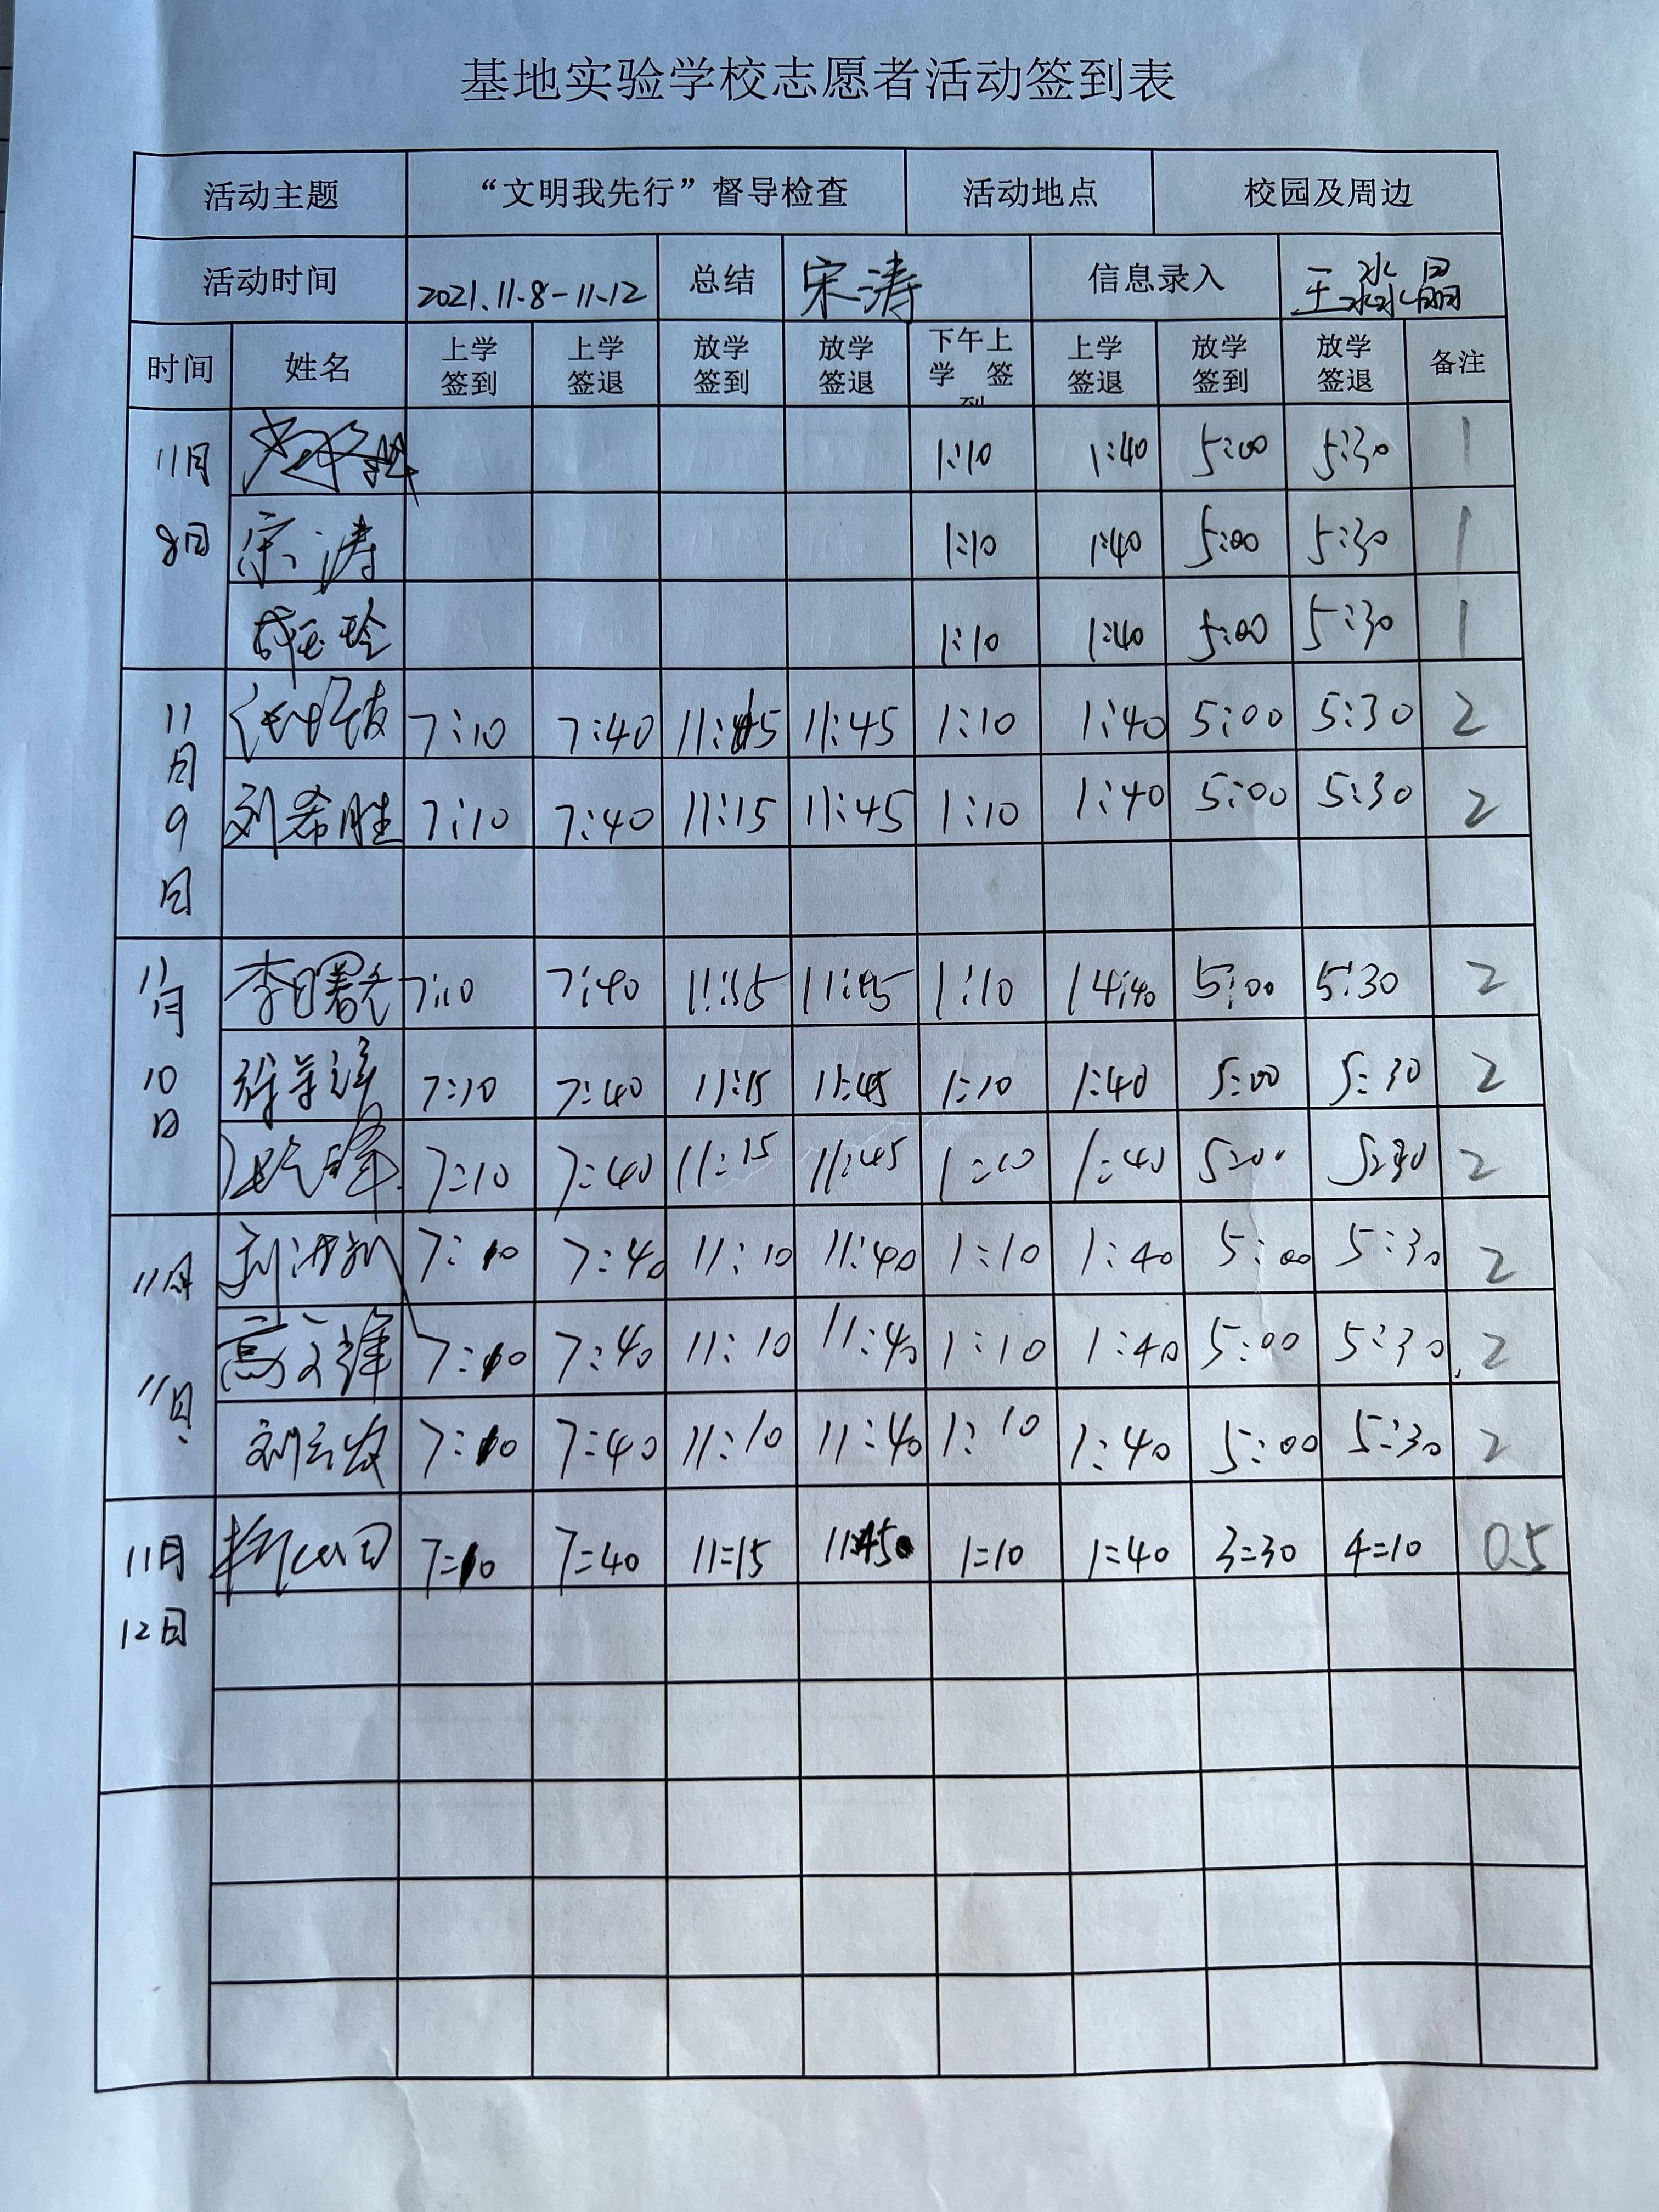 基地实验学校志愿者活动签到表
活动主题 “文明我先行”督导检查 活动地点 校园及周边
活动时间 2021.11.8-11.12 总结 宋涛 信息录入 王淼晶
时间 姓名 上学签到 上学签退 放学签到 放学签退 下午上学 签到 上学签退 放学签到 放学签退 备注
11月8日 1:10 1:40 5:00 5:30 1
宋涛 1:10 1:40 5:00 5:30 1
1:10 1:40 5:00 5:30 1
11月9日 7:10 7:40 11:15 11:45 1:10 1:40 5:00 5:30 2
刘希胜 7:10 7:40 11:15 11:45 1:10 1:40 5:00 5:30 2
11月10日 李曙光 7:10 7:40 11:15 11:45 1:10 5:00 5:30 2
7:10 7:40 11:15 11:45 1:10 1:40 5:00 5:30 2
7:10 7:40 11:15 11:45 1:10 1:40 5:00 5:30 2
11月11日 7:10 7:40 11:10 11:40 1:10 1:40 5:00 5:30 2
高文锋 7:10 7:40 11:10 11:40 1:10 1:40 5:00 5:30 2
7:10 7:40 11:10 11:40 1:10 1:40 5:00 5:30 2
11月12日 7=10 7=40 11=15 11:45 1=10 1=40 3=30 4=10 0.5